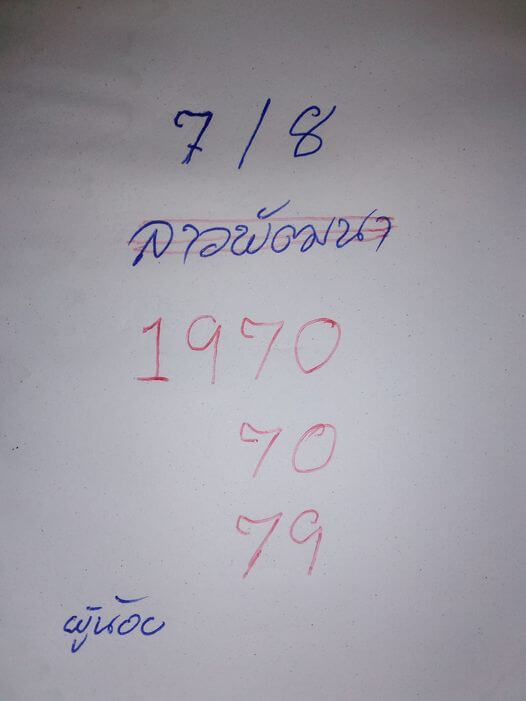 7 / 8
ลาวพัฒนา
1970
70
79
ผู้น้อย